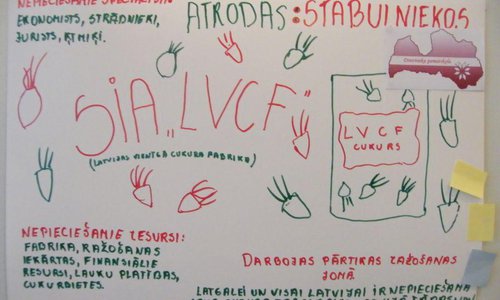 NEPIECIEŠAMIE SPECIĀLISTI:
EKONOMISTS, STRĀDNIEKI,
JURISTS, ĶĪMIĶI.
ATRODAS: STABULNIEKOS
SIA „LVCF"
(LATVIJAS VIENĪGĀ CUKURA FABRIKA)
LVCF
CUKURS
NEPIECIEŠAMIE RESURSI:
FABRIKA, RAŽOŠANAS
IEKĀRTAS, FINANSIĀLIE
RESURSI, LAUKU PLATĪBAS,
CUKURBIETES.
DARBOJAS PĀRTIKAS RAŽOŠANAS
JOMĀ
LATGALEI UN VISAI LATVIJAI IR NEPIECIEŠAMA